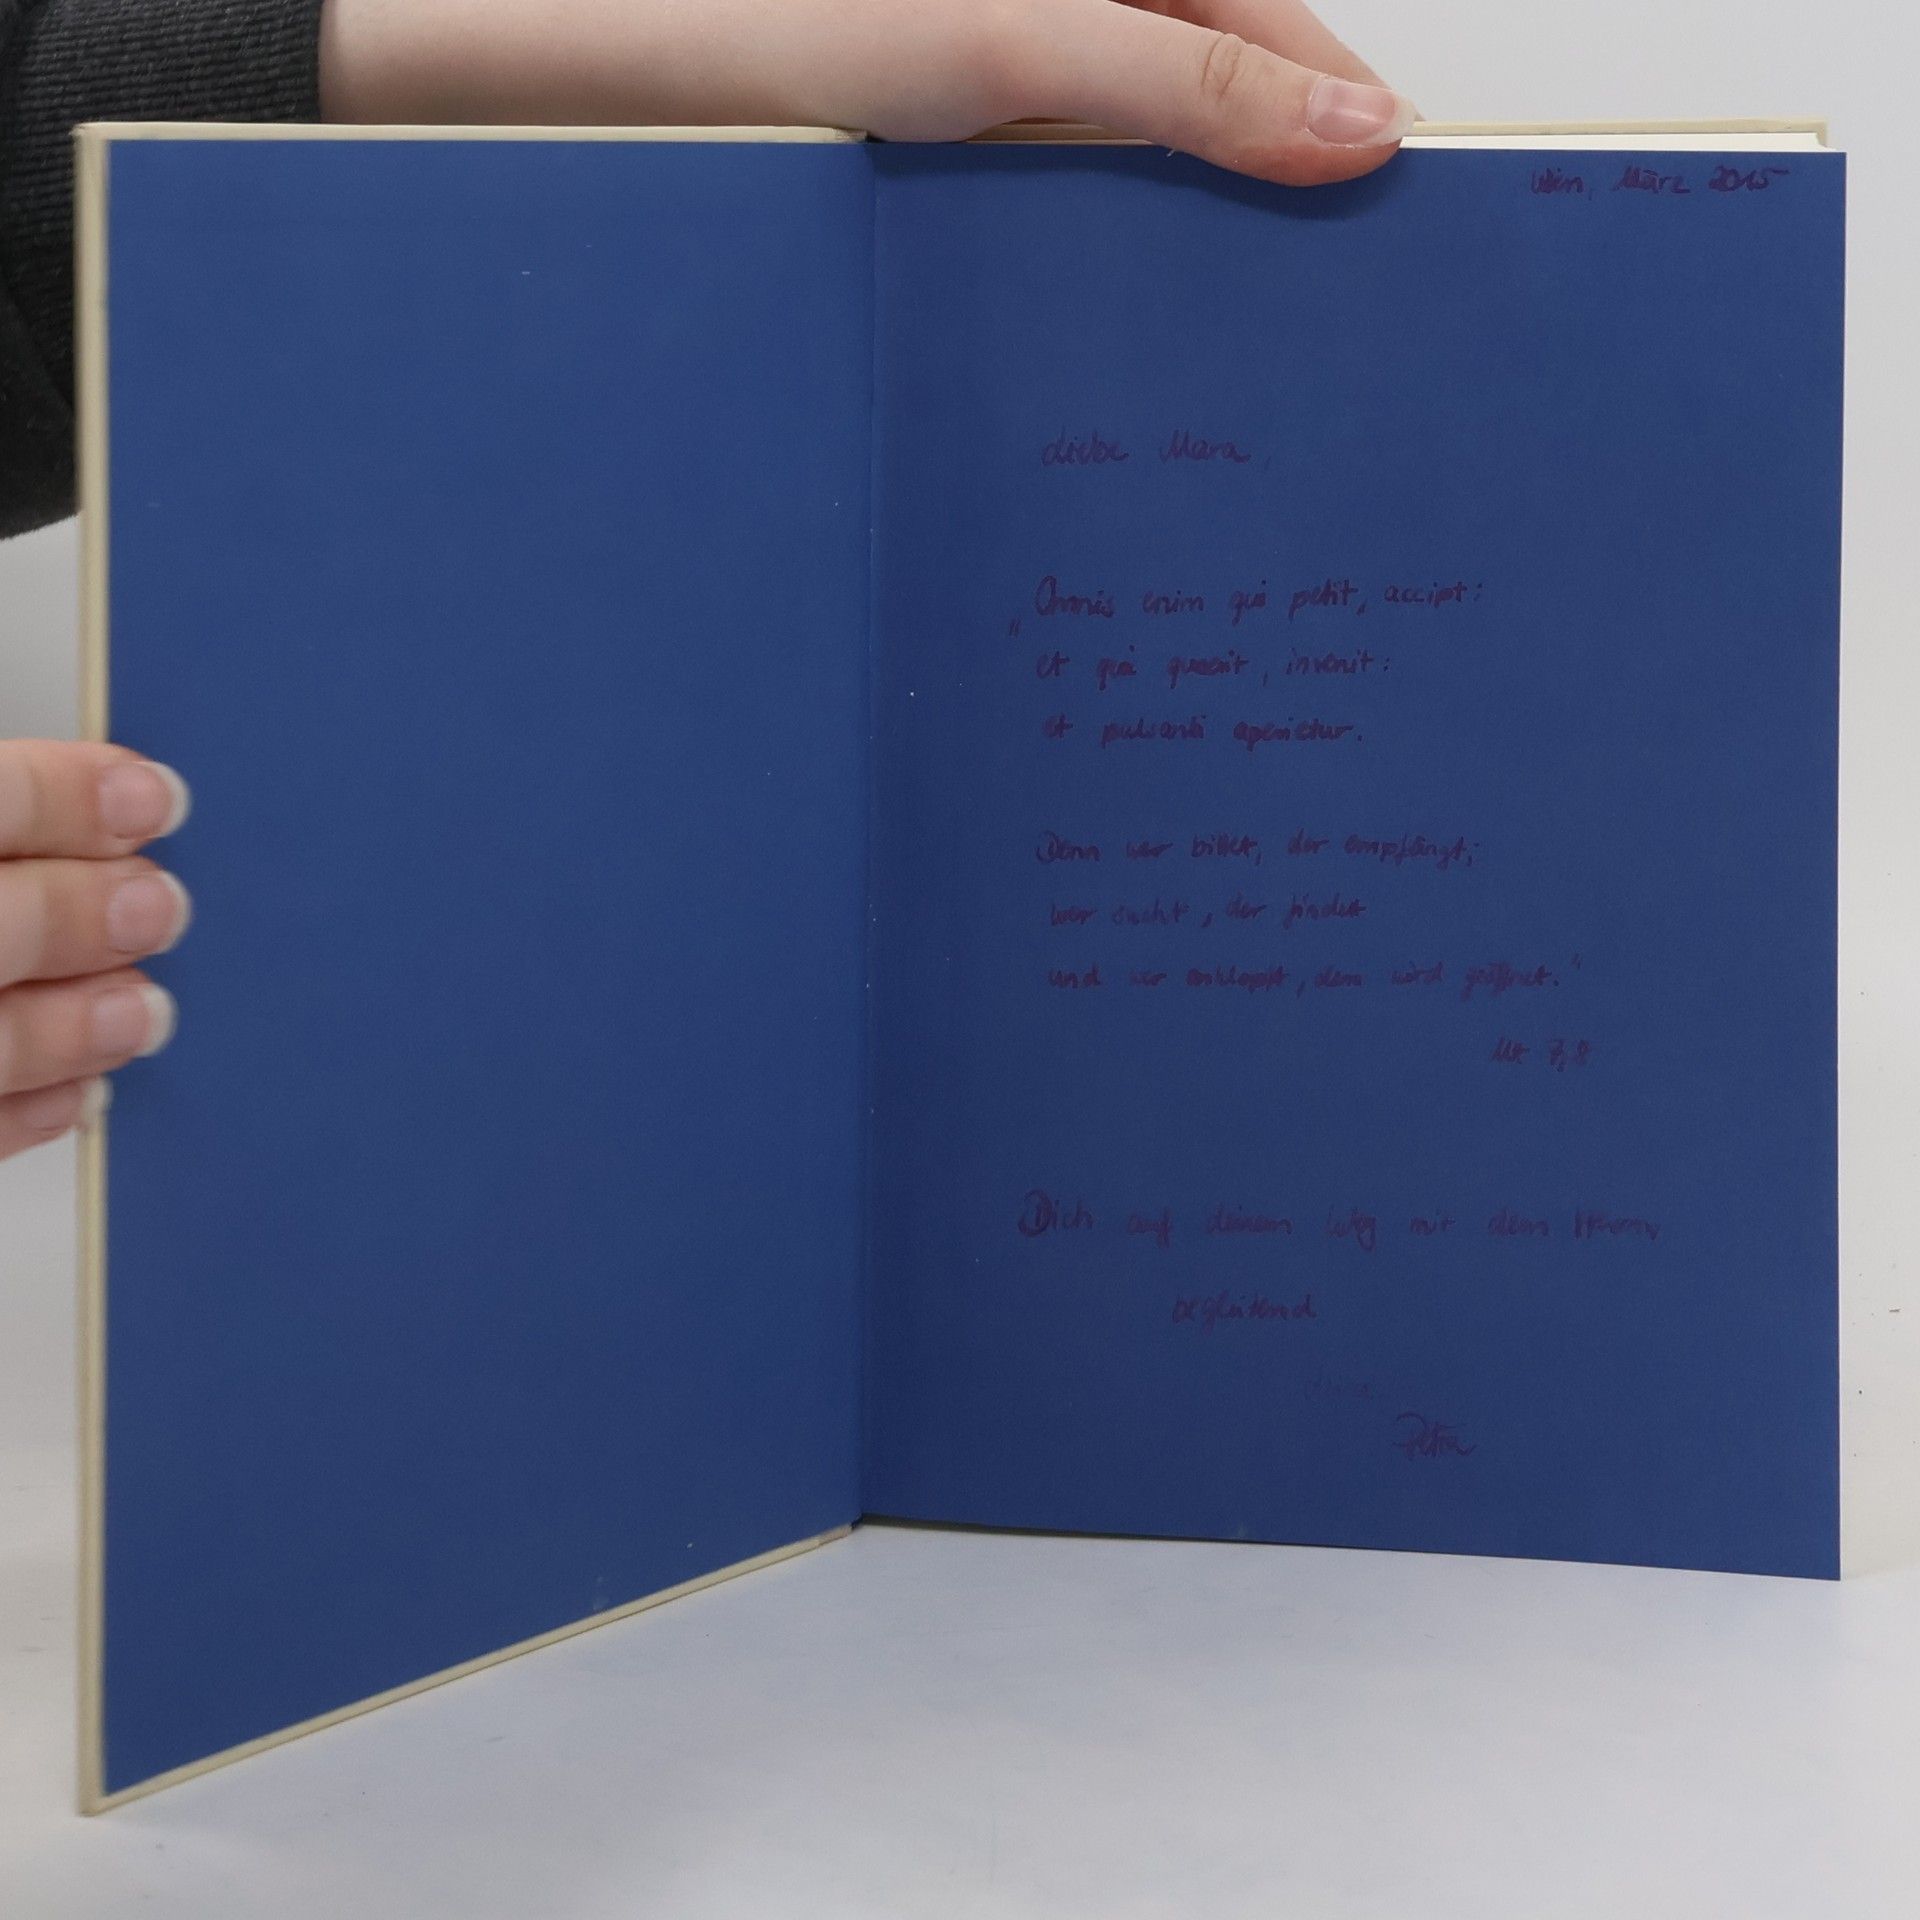 Wien, März 2015
Liebe Mara,
„Omnis enim qui petit, accipt:
et qui quaerit, invenit:
et pulsanti aperietur.
Denn wer bittet, der empfängt;
wer sucht, der findet
und wer anklopft, dem wird geöffnet."
Mt 7,8
Dich auf deinem Weg mit dem Herrn
begleitend
Petra